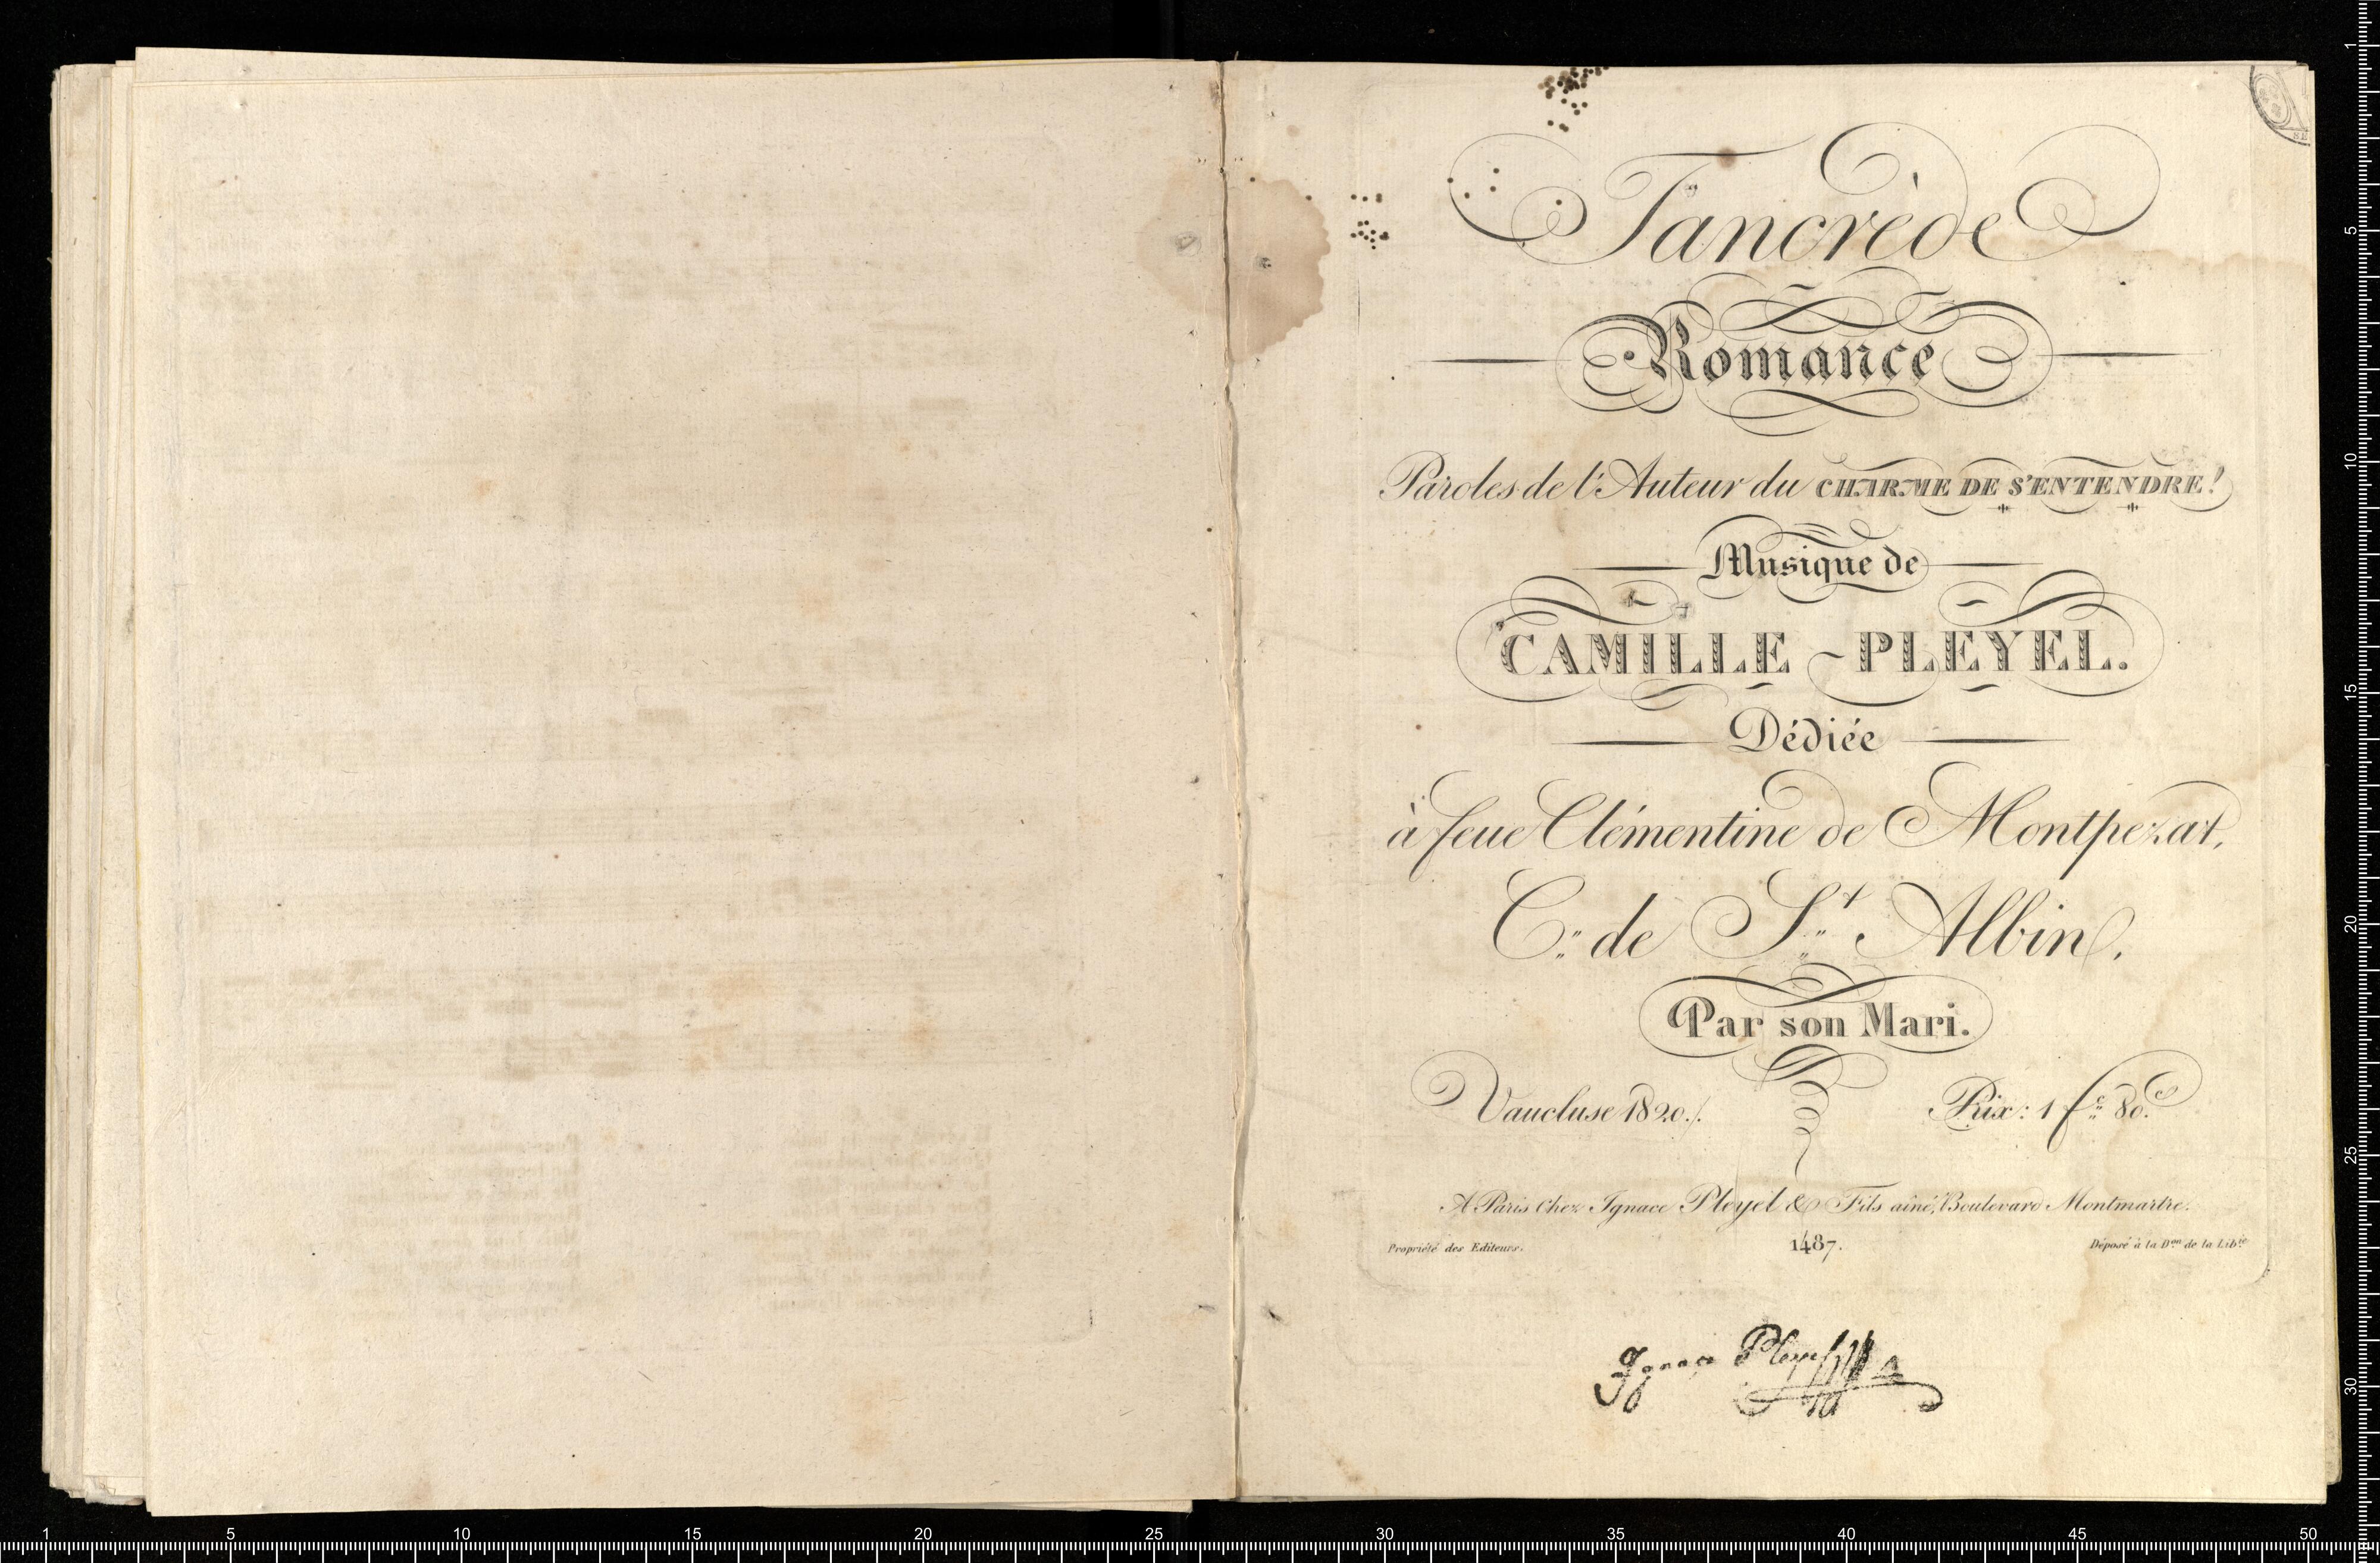 Tancrède
Romance
Paroles de l'Auteur du CHARME DE S'ENTENDRE!
Musique de
CAMILLE - PLEYEL.
Dédiée
à feue Clémentine de Montpezat,
C.sse de S.t Albin,
Par son Mari.
Vaucluse 1820.
Prix: 1 f.c 80.c
A Paris Chez Ignace Pleyel & Fils aîné, Boulevard Montmartre.
Propriété des Editeurs.
1487.
Déposé à la D.on de la Lib.ie
Ignace Pleyel
1 5 10 15 20 25 30 35 40 45 50
1
5
10
15
20
25
30